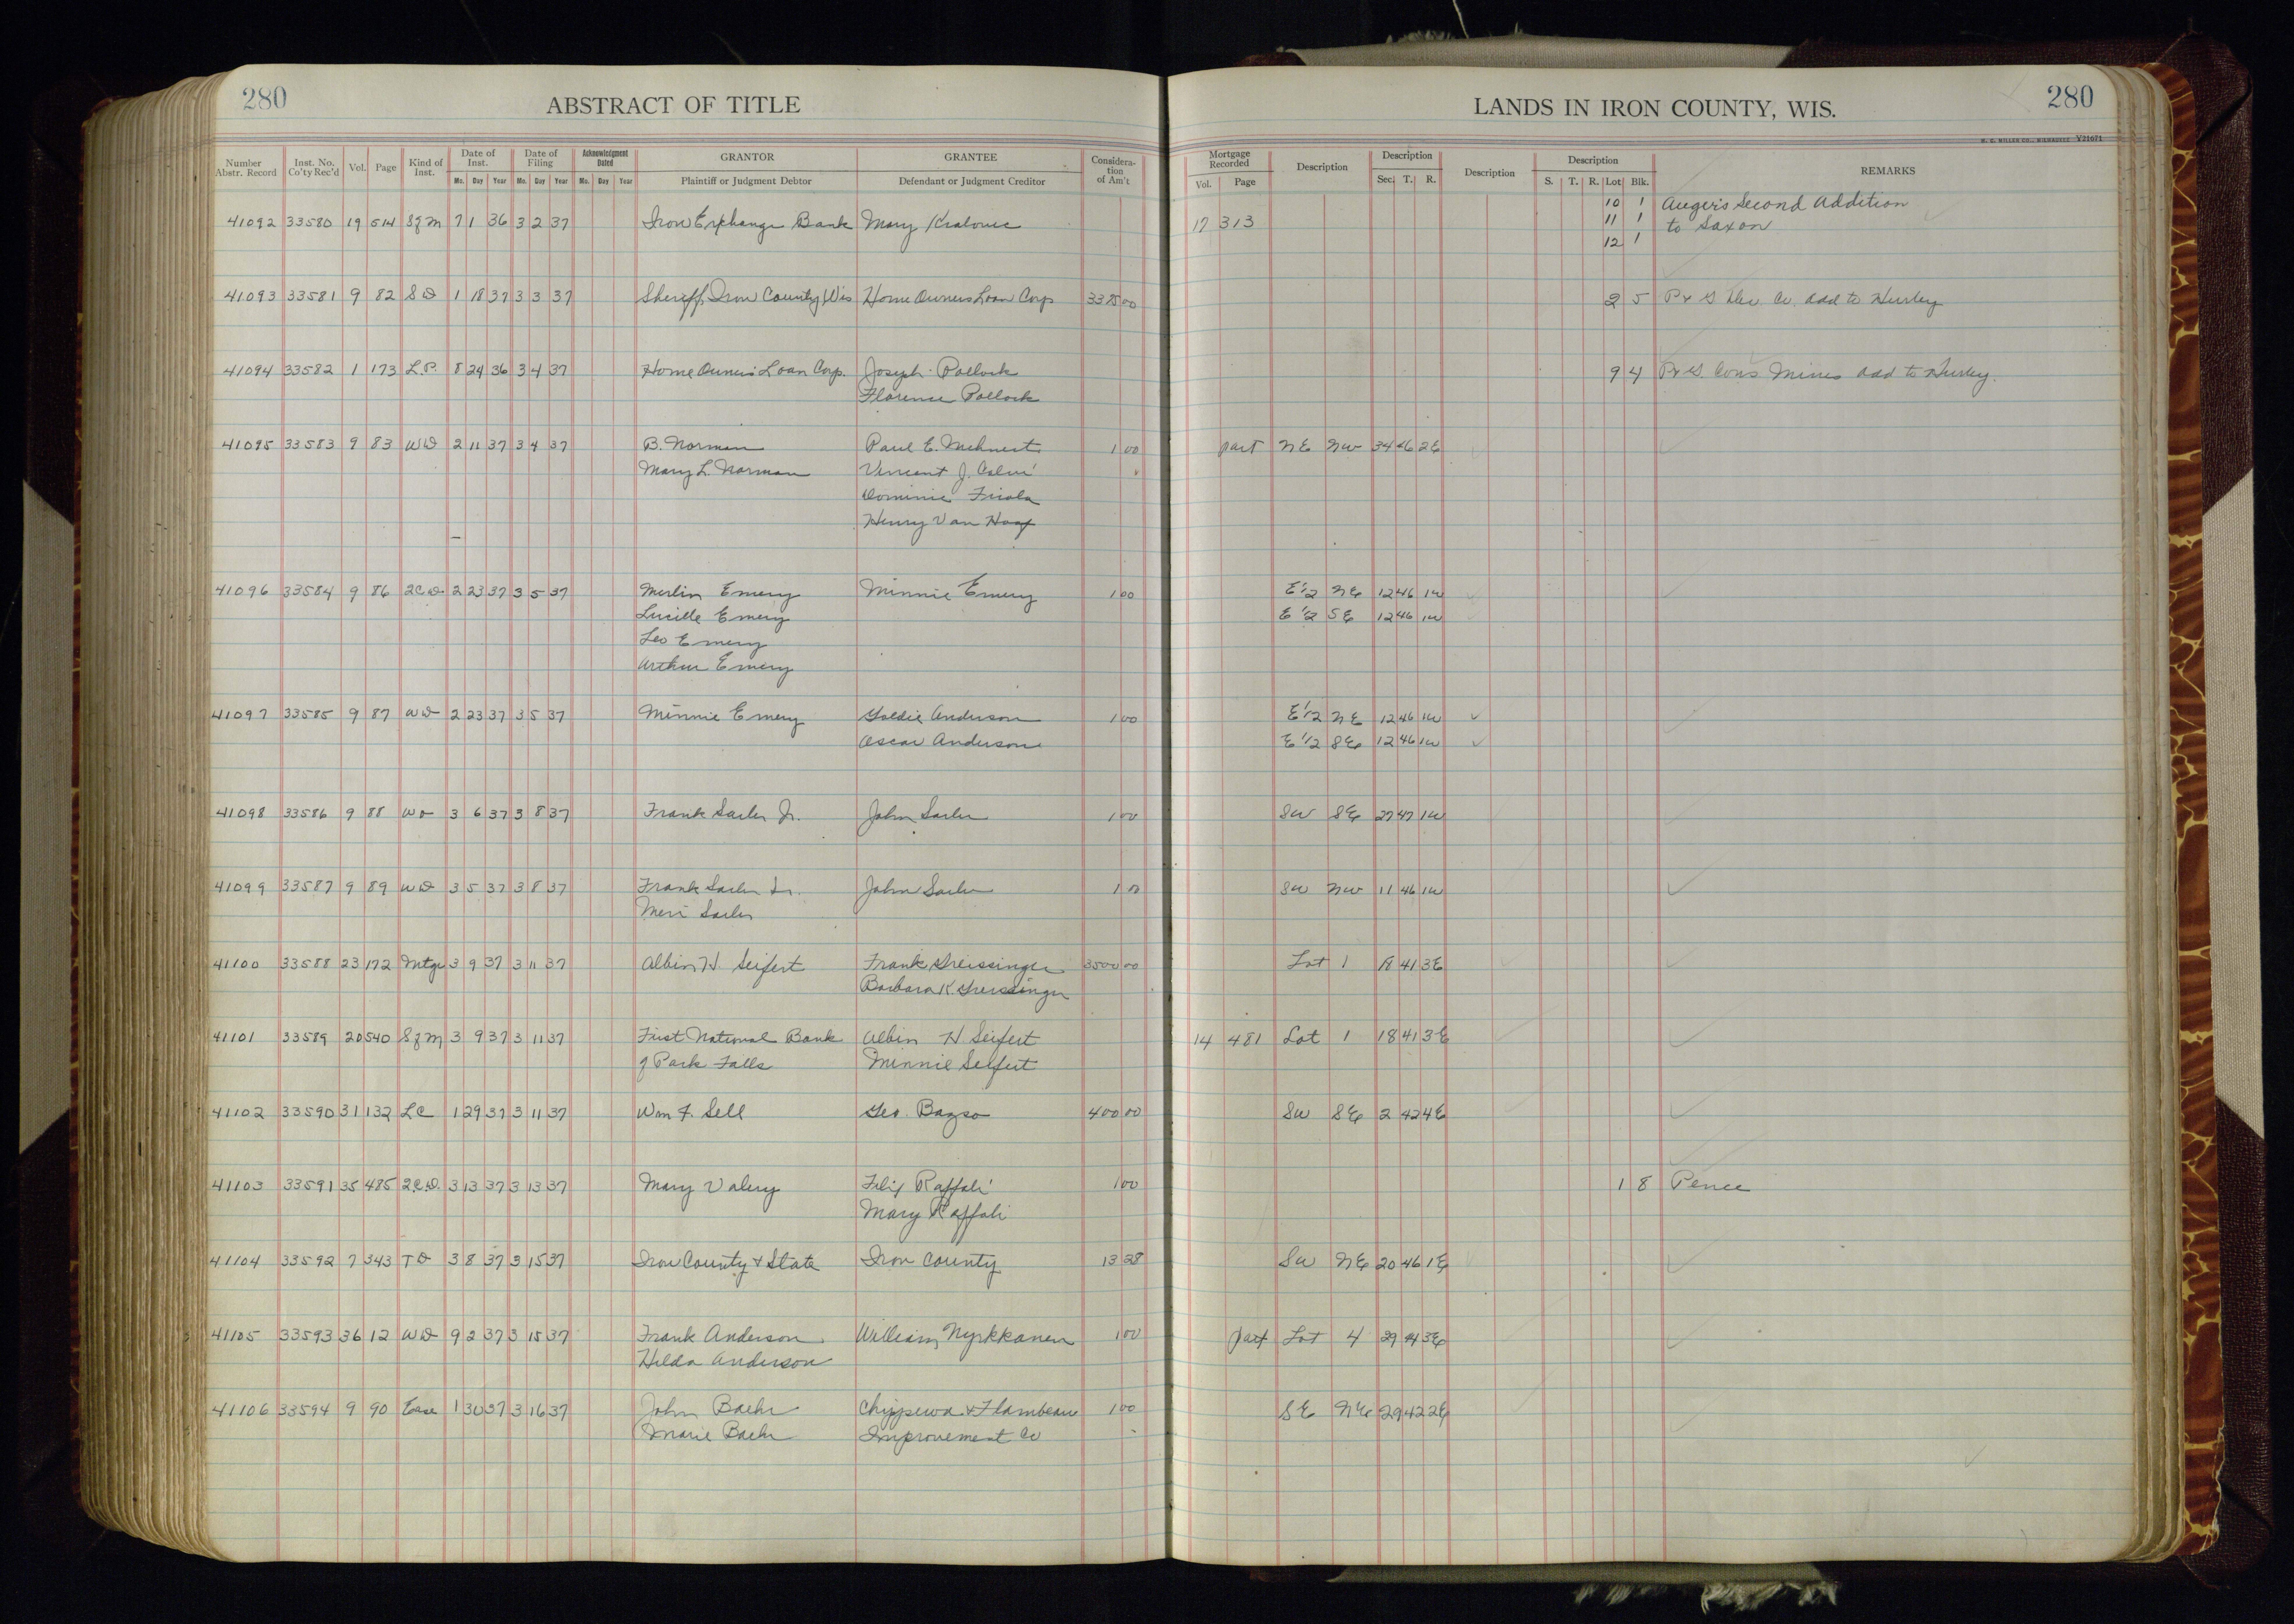 280 ABSTRACT OF TITLE
LANDS IN IRON COUNTY, WIS. 280
Number Abstr. Record Inst. No. Co'ty Rec'd Vol. Page Kind of Inst. Date of Inst. Mo. Day Year Date of Filing Mo. Day Year Acknowledgment Dated Mo. Day Year GRANTOR Plaintiff or Judgment Debtor GRANTEE Defendant or Judgment Creditor Considera-tion of Am't
Mortgage Recorded Vol. Page Description Description Sec. T. R. Description Description S. T. R. Lot Blk. REMARKS
41092 33580 19 514 S of M 7 1 36 3 2 37 Iron Exchange Bank Mary 17 313 10 1 Auger's Second Addition
11 1 to Saxon
12 1
41093 33581 9 82 S D 1 18 37 3 3 37 Sheriff, Iron County Wis Home Owners Loan Corp 3375 00 2 5 P & G Dev Co. add to Hurley
41094 33582 1 173 L.P. 8 24 36 3 4 37 Home Owners Loan Corp. Joseph Pollock 9 4 P & G. Cons Mines add to Hurley.
Florence Pollock
41095 33583 9 83 W D 2 11 37 3 4 37 B. Norman Paul E. 1 00 part NE NW 34 46 2E
Mary L. Norman Vincent J.
Dominic
Henry Van
41096 33584 9 86 2 C D 2 23 37 3 5 37 Merlin Emery Minnie Emery 1 00 E 1/2 NE 12 46 1W
Lucille Emery E 1/2 SE 12 46 1W
Leo Emery
Arthur Emery
41097 33585 9 87 W D 2 23 37 3 5 37 Minnie Emery Goldie Anderson 1 00 E 1/2 NE 12 46 1W
Oscar Anderson E 1/2 SE 12 46 1W
41098 33586 9 88 W D 3 6 37 3 8 37 Frank Sarler Jr. John Sarler 1 00 SW SE 27 47 1W
41099 33587 9 89 W D 3 5 37 3 8 37 Frank Sarler Sr. John Sarler 1 00 SW NW 11 46 1W
Meri Sarler
41100 33588 23 172 Mtge 3 9 37 3 11 37 Albin H. Seifert Frank Greissinger 3500 00 Lot 1 18 41 3E
Barbara K. Greissinger
41101 33589 20 540 S of M 3 9 37 3 11 37 First National Bank Albin H Seifert 14 481 Lot 1 18 41 3E
of Park Falls Minnie Seifert
41102 33590 31 132 L C 1 29 37 3 11 37 Wm F. Sell Geo. Bazso 400 00 SW SE 2 42 4E
41103 33591 35 485 2.C.D. 3 13 37 3 13 37 Mary Valery Filix Raffali 1 00 1 8 Pence
Mary Raffali
41104 33592 7 343 T D 3 8 37 3 15 37 Iron County & State Iron County 13 28 SW NE 20 46 1E
41105 33593 36 12 W D 9 2 37 3 15 37 Frank Anderson William Nyrkkanen 1 00 part Lot 4 29 44 3E
Hilda Anderson
41106 33594 9 90 Ease 1 30 37 3 16 37 John Baehr Chippewa & Flambeau 1 00 SE NE 29 42 2E
Marie Baehr Improvement Co